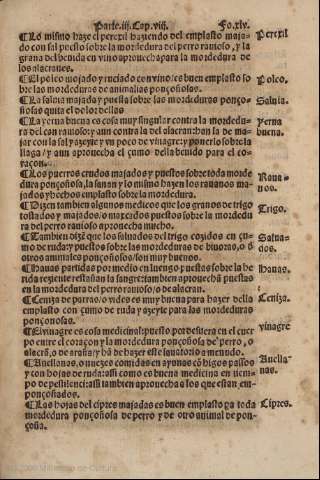 Parte.iij.Cap.viij. Fo.xlv.
¶Lo mismo haze el perexil haziendo del emplasto maja- Perexil
do con sal puesto sobre la mordedura del perro rauioso, y la
grana del beuida en vino aprouecha para la mordedura de
los alacranes.
¶El poleo mojado y ruciado con vino: es buen emplasto so Poleo.
bre las mordeduras de animalias ponçoñosas.
¶La saluia majada y puesta sobre las mordeduras ponço- Saluia.
ñosas quita el dolor dellas.
¶La yerua buena es cosa muy singular contra la mordedu- Yerua
ra del can rauioso: y aun contra la del alacran: han la de ma- buena.
jar con la sal y azeyte y vn poco de vinagre: y ponerlo sobre la
llaga / y aun aprouecha el çumo della beuido para el co-
raçon.
¶Los puerros crudos majados y puestos sobre toda morde
dura ponçoñosa, la sanan y lo mismo hazen los rauanos ma- Raua-
jados y hechos emplasto sobre la mordedura. nos.
¶Dizen tambien algunos medicos que los granos de trigo Trigo.
tostados y majados, o maxcados puestos sobre la mordedu
ra del perro rauioso aprouecha mucho.
¶Tambien dizē que los saluados del trigo cozidos en çu- Salua-
mo de ruda: y puestos sobre las mordeduras de biuoras, o d dos.
otros animales ponçoñosos / son muy buenos.
¶Hauas partidas por medio en luengo puestas sobre la he Hauas.
rida reziente restañan la sangre: tambien aprouechā puestas
en la mordedura del perro rauioso, o de alacran.
¶Ceniza de parras / o vides es muy buena para hazer della Ceniza.
emplasto con çumo de ruda y azeyte para las mordeduras
ponçoñosas.
¶El vinagre es cosa medicinal: puesto por defuera en el cuer vinagre
po entre el coraçon y la mordedura ponçoñosa de perro, o
alacrā, o de araña: y hā de hazer este lauatorio a menudo.
¶Auellanas, o nuezes comidas en ayunas cō higos passos Auella-
y con hojas de ruda: assi como es buena medicina en tiem- nas.
po de pestilencia: assi tambien aprouecha a los que estan em-
ponçoñados.
¶Las hojas del cipres majadas es buen emplasto pa toda Cipres.
mordedura ponçoñosa de perro y de otro animal de pon-
çoña.